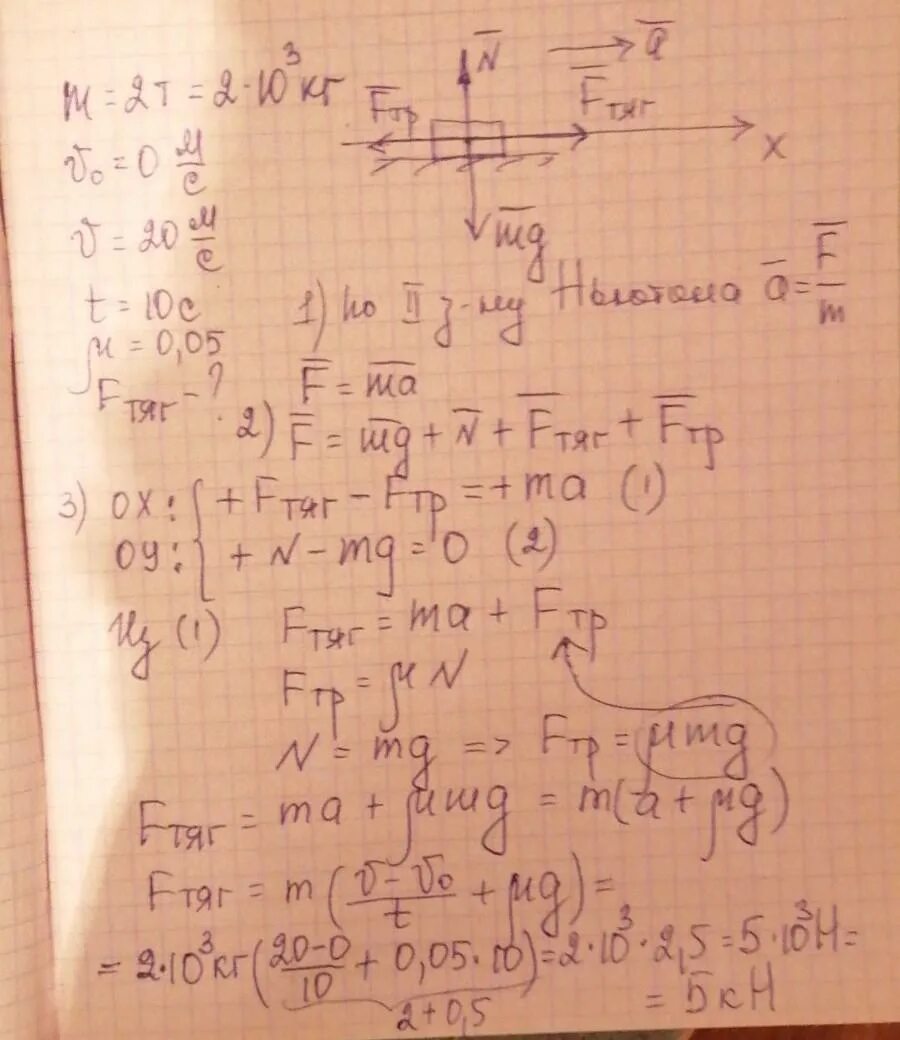 m = 2т = 2·10³ кг
v₀ = 0 м/с
v = 20 м/с
t = 10с
μ = 0,05
Fтяг - ?
N̅
a̅
F̅тр
F̅тяг
X
m̅g̅
1) по II з-ну Ньютона a̅ = F̅/m
F̅ = m̅a̅
2) F̅ = m̅g̅ + N̅ + F̅тяг + F̅тр
3) OX: { + Fтяг - Fтр = + ma (1)
OY: { + N - mg = 0 (2)
Из (1) Fтяг = ma + Fтр
Fтр = μN
N = mg => Fтр = μmg
Fтяг = ma + μmg = m(a + μg)
Fтяг = m((v - v₀)/t + μg) =
= 2·10³кг((20-0)/10 + 0,05·10) = 2·10³·2,5 = 5·10³Н =
2+0,5
= 5кН